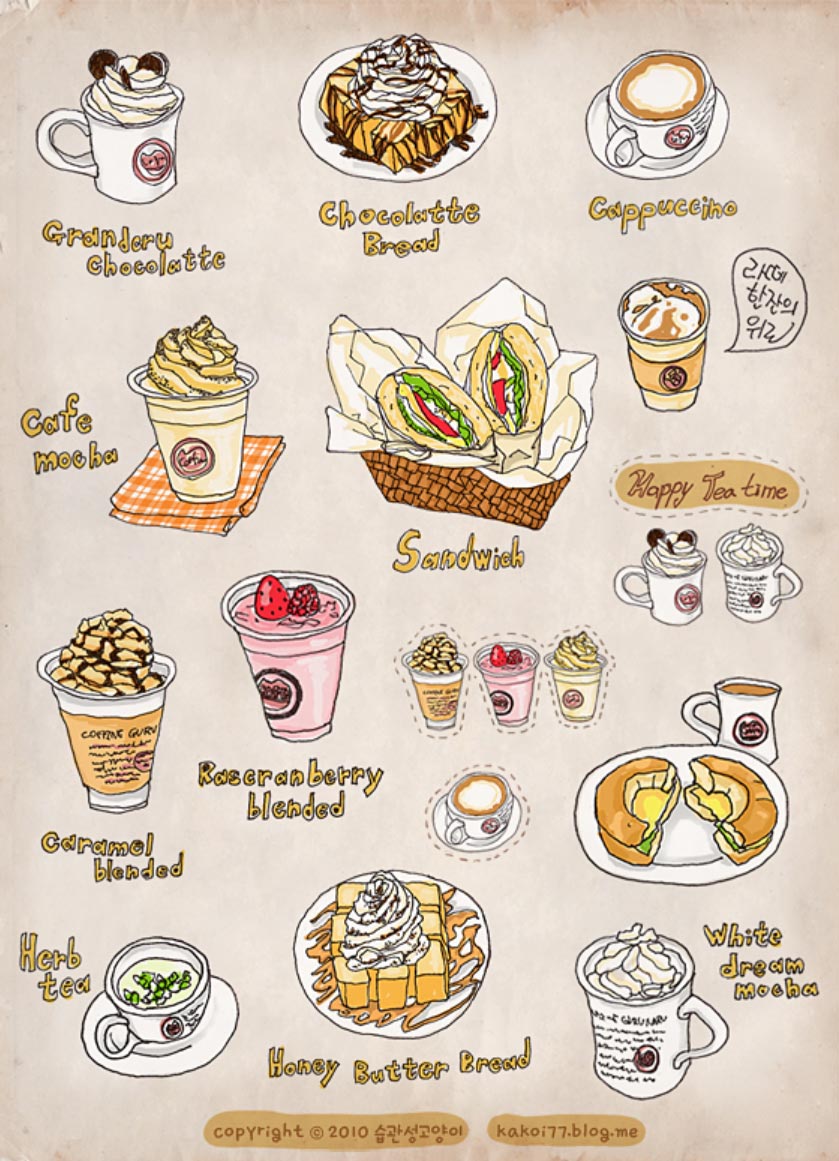 Grandcru
chocolatte
Chocolatte
Bread
Cappuccino
라떼
한잔의
위로
Cafe
mocha
Sandwich
Happy Tea time
COFFINE GURU
Rascranberry
blended
Caramel
blended
Herb
tea
White
dream
mocha
Honey Butter Bread
copyright © 2010 습관성고양이
kakoi77.blog.me